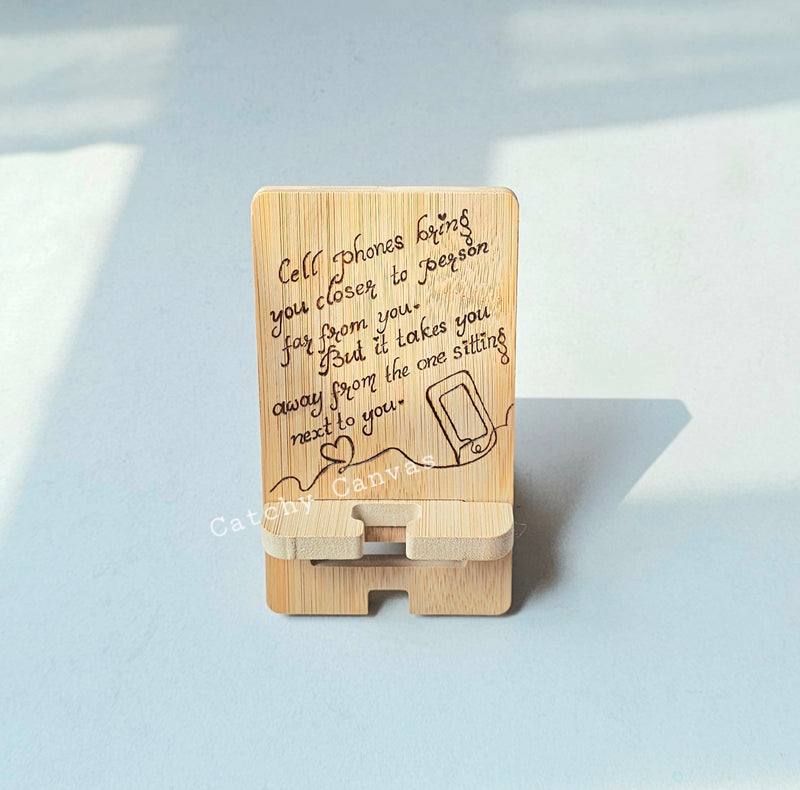 Cell phones bring
you closer to person
far from you.
But it takes you
away from the one sitting
next to you.
Catchy Canvas